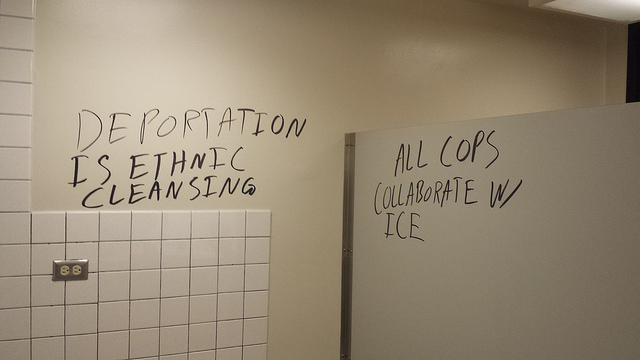 DEPORTATION
IS ETHNIC
CLEANSING
ALL COPS
COLLABORATE W/
ICE